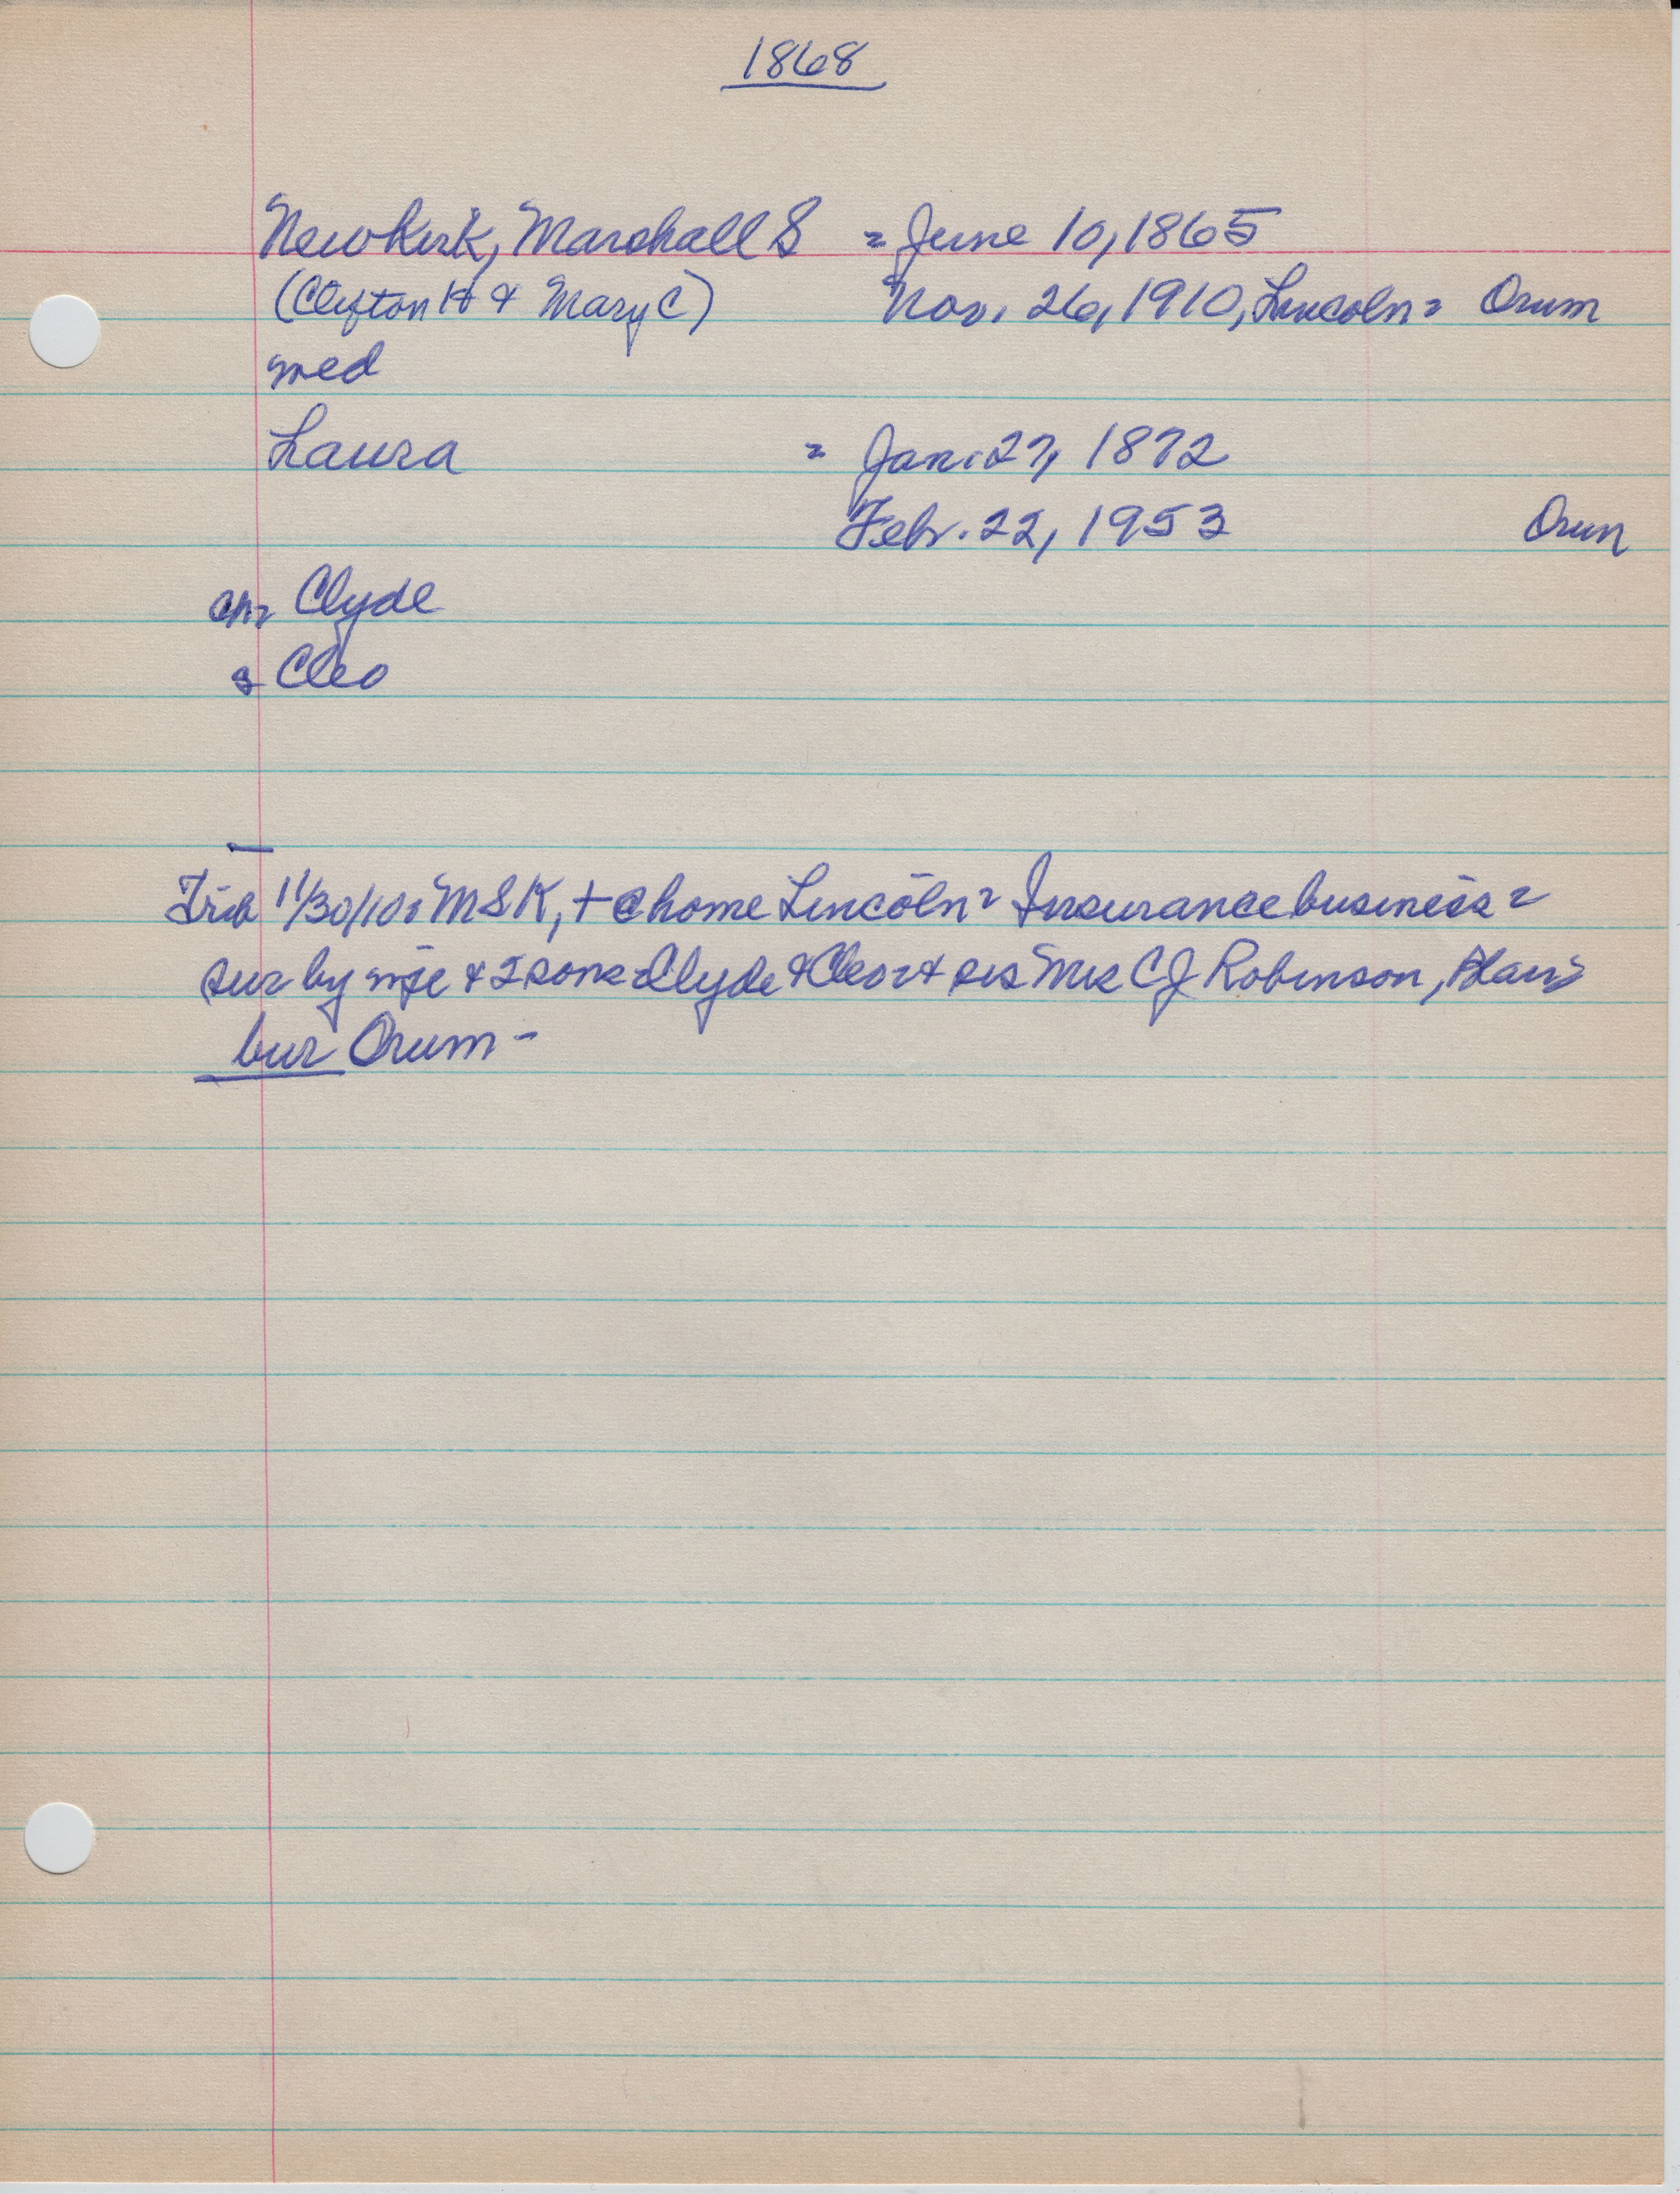 1868
Newkirk, Marshall S = June 10, 1865
(Clifton H & Mary C) Nov. 26, 1910, Lincoln = Orum
med
Laura = Jan. 27, 1872
Febr. 22, 1953 Orum
ch= Clyde
& Cleo
Trib 11/30/10: MSK, + @ home Lincoln = Insurance business =
sur by wife & 2 sons Clyde & Cleo & sis Mrs CJ Robinson, Blair
bur Orum -